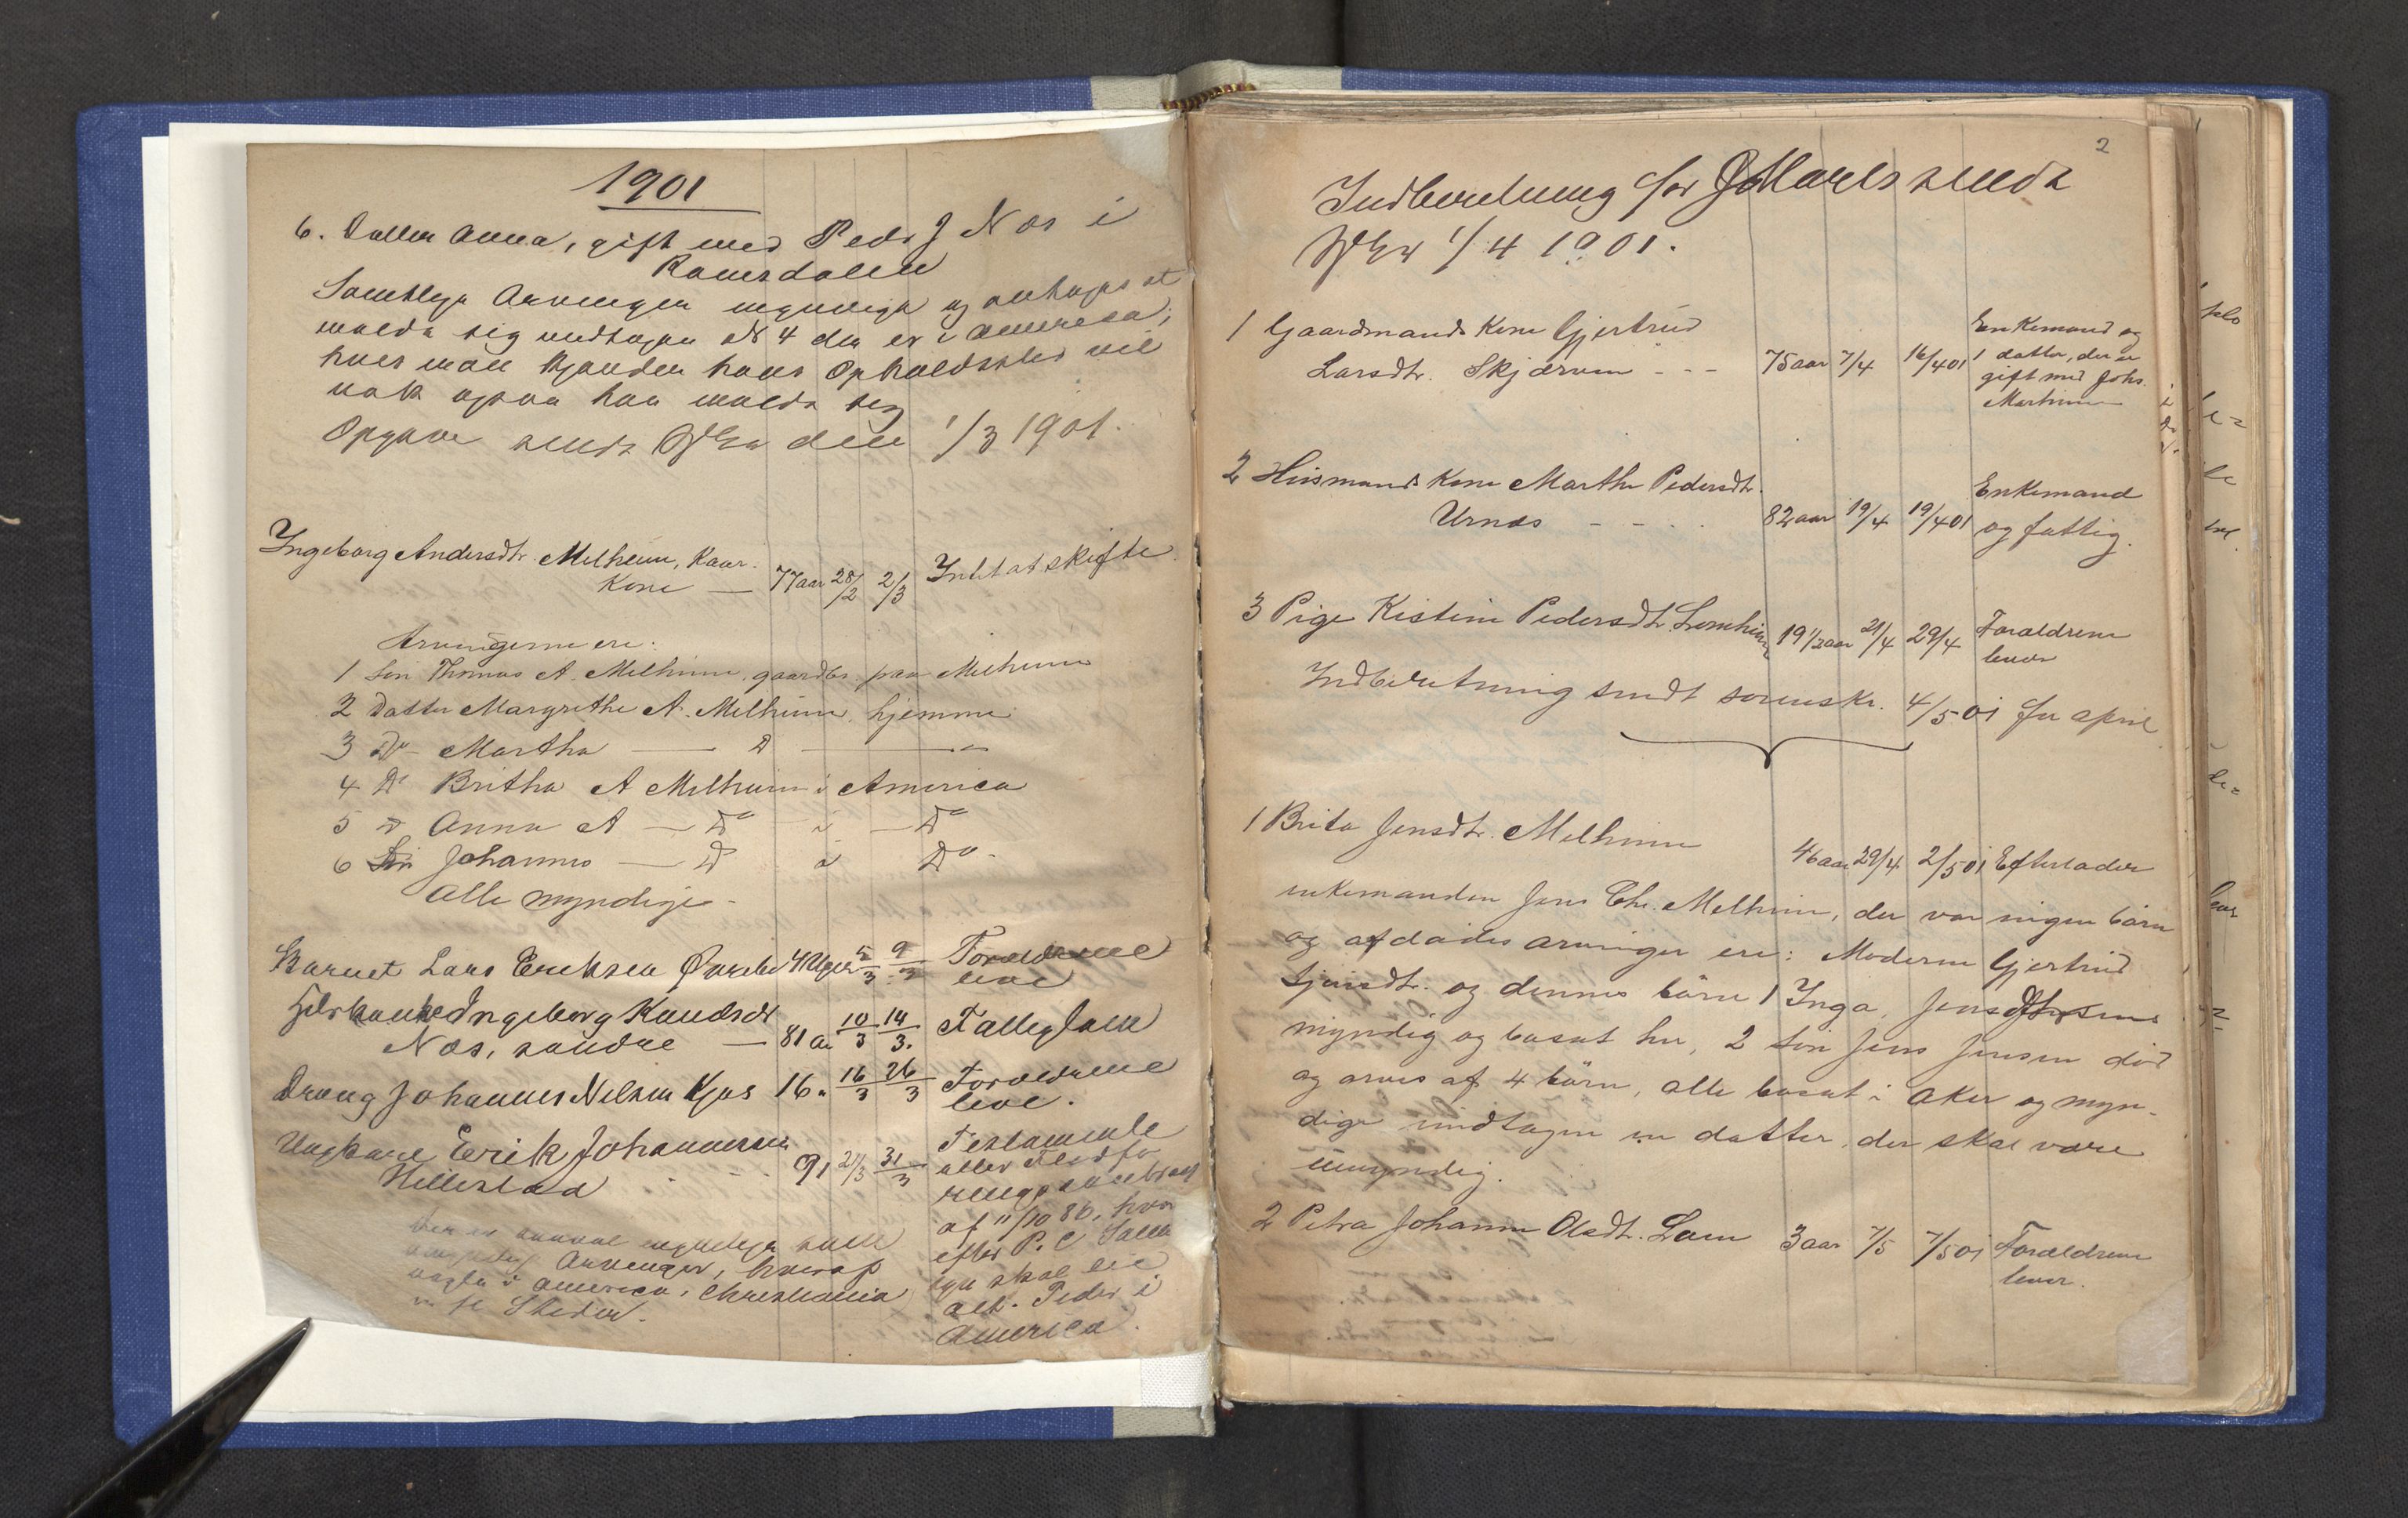 1901
6. Datter Anna, gift med Peder J Næs i
Ramsdalen
Samtlige Arvinger myndige og antages at
melde sig undtagen N 4 der er i America;
hvis man kjender hans Opholdssted vil
nok ogsaa han melde sig
Opgave sendt den 1/3 1901.
Ingeborg Andersdtr. Melheim, Kaar-
Kone — 77 aar 28/2 2/3 Intet at skifte.
Arvingerne ere:
1 Sön Thomas A. Melheim, gaardbr. paa Melheim
2 Datter Margrethe A. Melheim hjemme
3 Do Martha — D — "
4 Do Britha A Melheim i America
5 D Anna A — Do i — Do
6 Sön Johannes — D i Do
Alle myndige -
Barnet Lars Eriksen 4 Uger 5/3 9/3 Forældrene
leve
Ingeborg Knudsdr
Næs, søndre — 81 a. 10/3 14/3. Fattiglem
Dreng Johannes Nilsen Kjös 16 " 16/3 26/3 Forældrene
leve.
Ungkarl Erik Johannessen 91 21/3 31/3 Testamente
Hillestad - - eller
af 11/10 86, hvor
efter P. C
skal
Peder i
America.
Der er myndige
Arvinger, hvoraf
nogle i America, Christiania
Steder.
2
Indberetning for Marts sendt
1/4 1901.
1 Gaardmands Kone Gjertrud
Larsdtr. Skjærven - - - 75 aar 7/4 16/4 01 Enkemand og
1 datter, der er
gift med Johs.
2 Husmands Kone Marthe Pedersdtr.
Urnæs - - . 82 aar 19/4 19/4 01 Enkemand
og fattig.
3 Pige Kistine Pedersdtr. Lomheim 19 1/2 aar 21/4 29/4 Forældrene
lever
Indberetning sendt sorenskr. 4/5 01 for april
1 Brita Jensdtr. Melheim 46 aar 29/4 2/5 01 Efterlader
enkemanden Jens Chr. Melheim, der var ingen börn
og afdödes arvinger ere: Moderen Gjertrud
og dennes börn 1 Inga Jens
myndig og bosat her, 2 Sön Jens Jensen död
og arves af 4 börn, alle bosat i Aker og myn-
dige undtagen en datter, der skal være
umyndig.
2 Petra Johanne Olsdtr. Lam 3 aar 7/5 7/5 01 Forældrene
lever.